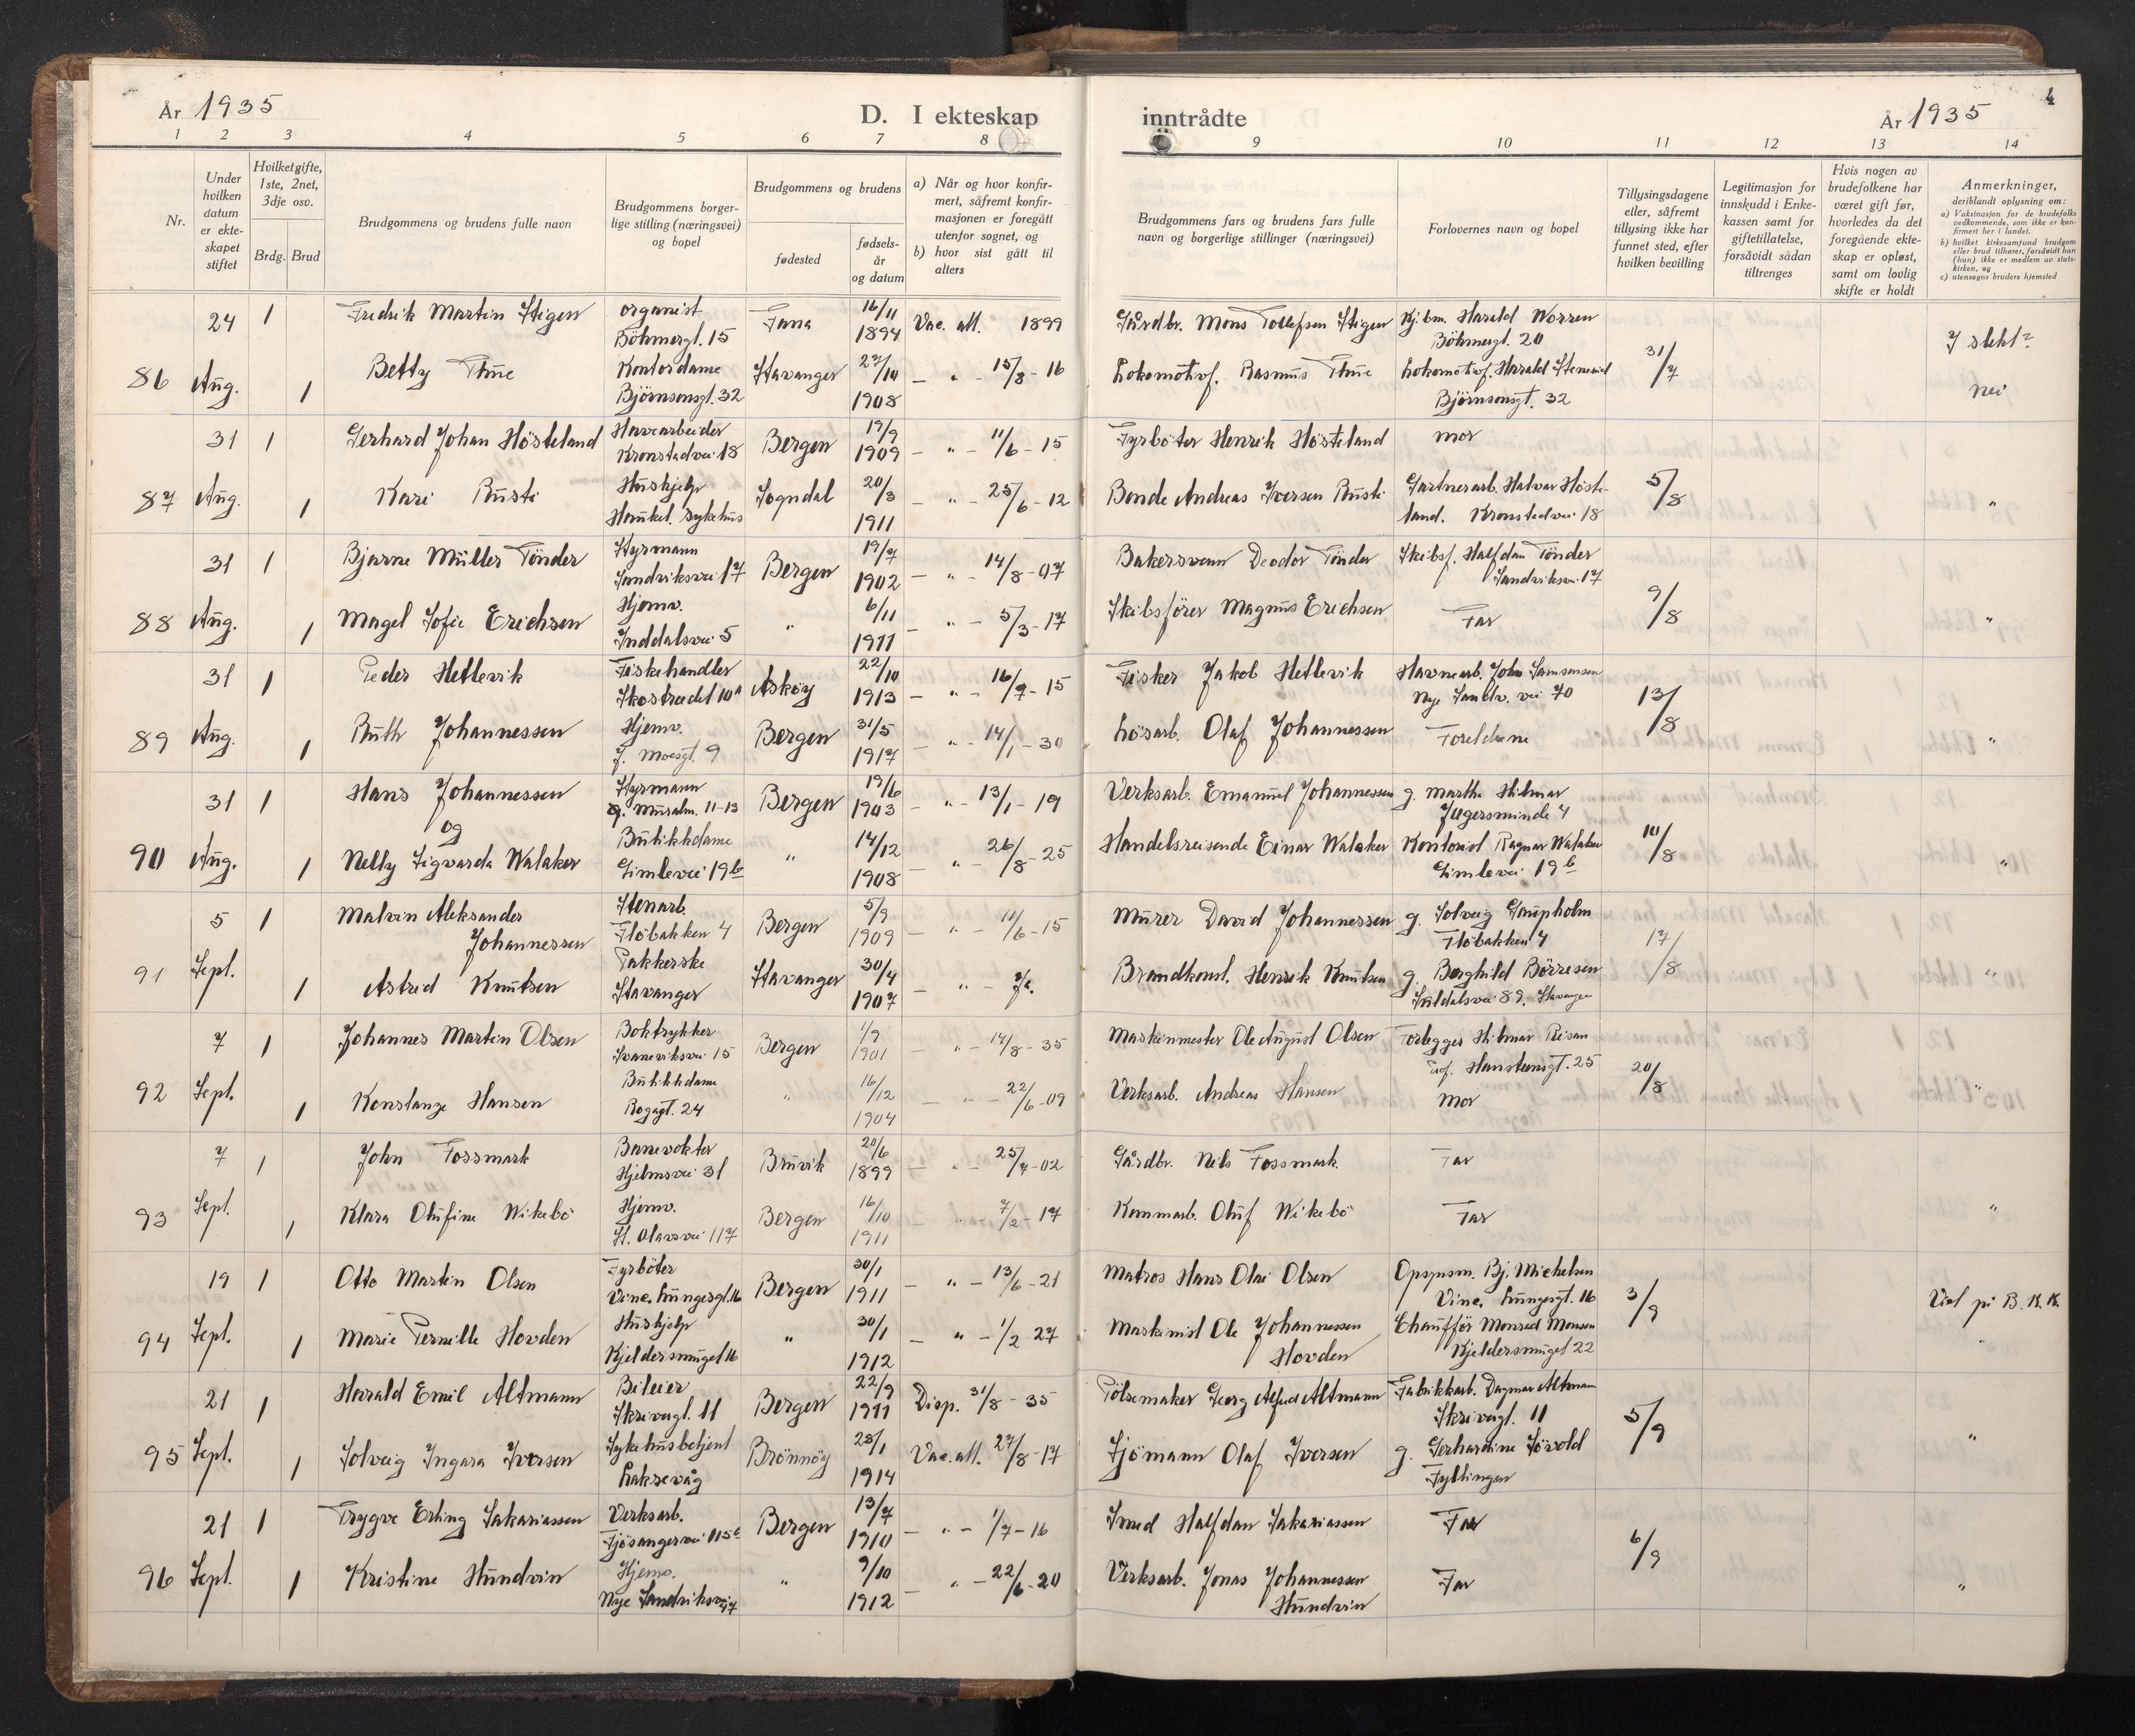 År 1935
D. I ekteskap
inntrådte
År 1935
4
1 2 3 4 5 6 7 8 9 10 11 12 13 14
Nr.
Under hvilken datum er ekte-skapet stiftet
Hvilket gifte, 1ste, 2net, 3dje osv.
Brdg. Brud
Brudgommens og brudens fulle navn
Brudgommens borger-lige stilling (næringsvei) og bopel
Brudgommens og brudens
fødested
fødsels-år og datum
a) Når og hvor konfir-mert, såfremt konfir-masjonen er foregått utenfor sognet, og
b) hvor sist gått til alters
Brudgommens fars og brudens fars fulle navn og borgerlige stillinger (næringsvei)
Forlovernes navn og bopel
Tillysingsdagene eller, såfremt tillysing ikke har funnet sted, efter hvilken bevilling
Legitimasjon for innskudd i Enke-kassen samt for giftetillatelse, forsåvidt sådan tiltrenges
Hvis nogen av brudefolkene har været gift før, hvorledes da det foregående ekte-skap er opløst, samt om lovlig skifte er holdt
Anmerkninger, deriblandt oplysning om:
a) Vaksinasjon for de brudefolks vedkommende, som ikke er kon-firmert her i landet.
b) hvilket kirkesamfund brudgom eller brud tilhører, forsåvidt han (hun) ikke er medlem av stats-kirken, og
c) utensogns bruders hjemsted
24 1 Fredrik Martin Stigen organist Böhmergt. 15 Fana 16/11 1894 Vac. att. 1899 Gårdbr. Mons Tollefsen Stigen Kj.bm. Harald Worren Böhmergt. 20
I slekt?
86 Aug. 1 Betty Thue Kontordame Björnsonsgt. 32 Stavanger 27/10 1908 — " — 15/8 - 16 Lokomotivf. Rasmus Thue Lokomotivf. Harald Björnsonsgt. 32 31/7 nei
31 1 Gerhard Johan Hösteland Havearbeider Kronstadvei 18 Bergen 19/9 1909 — " — 11/6 - 15 Fyrböter Henrik Hösteland mor
87 Aug. 1 Kari Rusti Hushjelp Haukel. sykehus Sogndal 20/3 1911 — " — 25/6 - 12 Bonde Andreas Iversen Rusti Gartnerarb. Halvar Höste-land. Kronstadvei 18 5/8 "
31 1 Bjarne Müller Tönder Styrmann Sandviksvei 17 Bergen 19/7 1902 — " — 14/8 - 07 Bakersvenn Deodor Tönder Skibsf. Halfdan Tönder Sandviksv. 17
88 Aug. 1 Magel Sofie Erichsen Hjemv. Inddalsvei 5 " 6/11 1911 — " — 5/3 - 17 Skibsförer Magnus Erichsen Far 9/8 "
31 1 Peder Hetlevik Fiskehandler Skostredet 10a Askøy 22/10 1913 — " — 16/7 - 15 Fisker Jakob Hetlevik Havnearb. John Samsonsen Nye Sandv. vei 70
89 Aug. 1 Ruth Johannessen Hjemv. J. Moesgt. 9 Bergen 31/5 1917 — " — 14/1 - 30 Lösarb. Olaf Johannessen Foreldrene 13/8 "
31 1 Hans Johannessen Styrmann Muralm. 11-13 Bergen 19/6 1903 — " — 13/1 - 19 Verksarb. Emanuel Johannessen g. Martha Hilmar Jægersminde 4
og
90 Aug. 1 Nelly Sigvarda Walaker Butikkdame Gimlevei 19b " 14/12 1908 — " — 26/8 - 25 Handelsreisende Einar Walaker Kontorist Ragnar Walaker Gimlevei 19b 10/8 "
5 1 Malvin Aleksander Johannessen Stenarb. Flöbakken 4 Bergen 5/9 1909 — " — 11/6 - 15 Murer David Johannessen g. Solveig Gaupholm Flöbakken 4
91 Sept. 1 Astrid Knutsen Pakkerske Stavanger Stavanger 30/4 1907 — " — Ja. Brandkonst. Henrik Knutsen g. Borghild Börresen Suldalsvei 89. Stavanger 17/8 "
7 1 Johannes Martin Olsen Boktrykker Svaneviksvei 15 Bergen 1/9 1901 — " — 14/8 - 35 Maskinmester Ole August Olsen Hilmar Reisan Prof. Hansteensgt. 25
92 Sept. 1 Konstanze Hansen Butikkdame Rogagt. 24 " 16/12 1904 — " — 22/6 - 09 Verksarb. Andreas Hansen Mor 20/8 "
7 1 John Fossmark Banevokter Hjelmsvei 31 Bruvik 20/6 1899 — " — 25/4 - 02 Gårdbr. Nils Fossmark. Far
93 Sept. 1 Klara Olufine Wikebö Hjemv. St. Olavsvei 117 Bergen 16/10 1911 — " — 7/2 - 17 Kommarb. Oluf Wikebö Far "
19 1 Otto Martin Olsen Fyrböter Vinc. Lungesgt. 16 Bergen 30/1 1911 — " — 13/6 - 21 Matros Hans Olai Olsen Opsynsm. Bj. Michelsen Vinc. Lungesgt. 16
94 Sept. 1 Marie Pernille Hovden Hushjelp Kjeldersmuget 16 " 30/1 1912 — " — 1/2 27 Maskinist Ole Johannessen Hovden Chaufför Monrad Monsen Kjeldersmuget 22 3/9 Viet på B. K. K. "
21 1 Harald Emil Altmann Bileier Skrivergt. 11 Bergen 22/9 1911 Disp. 31/8 - 35 Pölsemaker Georg Alfred Altmann Fabrikkarb. Dagmar Altmann Skrivergt. 11
95 Sept. 1 Solveig Ingara Iversen Sykehusbetjent Laksevåg Brönnöy 28/1 1914 Vac. att. 27/8 - 17 Sjömann Olaf Iversen g. Gerhardine Sövold Fyllingen 5/9 "
21 1 Trygve Erling Sakariassen Verksarb. Fjösangervei 115 Bergen 13/7 1910 — " — 1/7 - 16 Smed Halfdan Sakariassen Far
96 Sept. 1 Kristine Hundvin Hjemv. Nye Sandviksvei 47 " 9/10 1912 — " — 22/6 - 20 Verksarb. Jonas Johannessen Hundvin Far 6/9 "